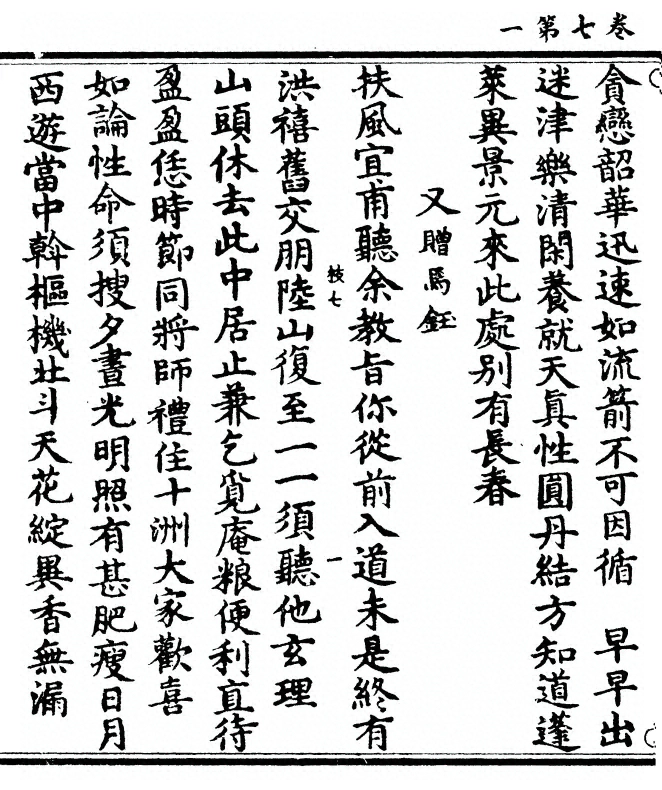 卷七第一
貪戀韶華迅速如流箭不可因循　早早出
迷津樂清閑養就天眞性圓丹結方知道蓬
萊異景元來此處別有長春
又贈馬鈺
扶風宜甫聽余教旨你從前入道未是終有
枝七　一
洪禧舊交朋陸山復至一一須聽他玄理
山頭休去此中居止兼乞覓庵粮便利直待
盈盈恁時節同將師禮住十洲大家歡喜
如論性命須搜夕晝光明照有甚肥瘦日月
西遊當中斡樞機北斗天花綻異香無漏